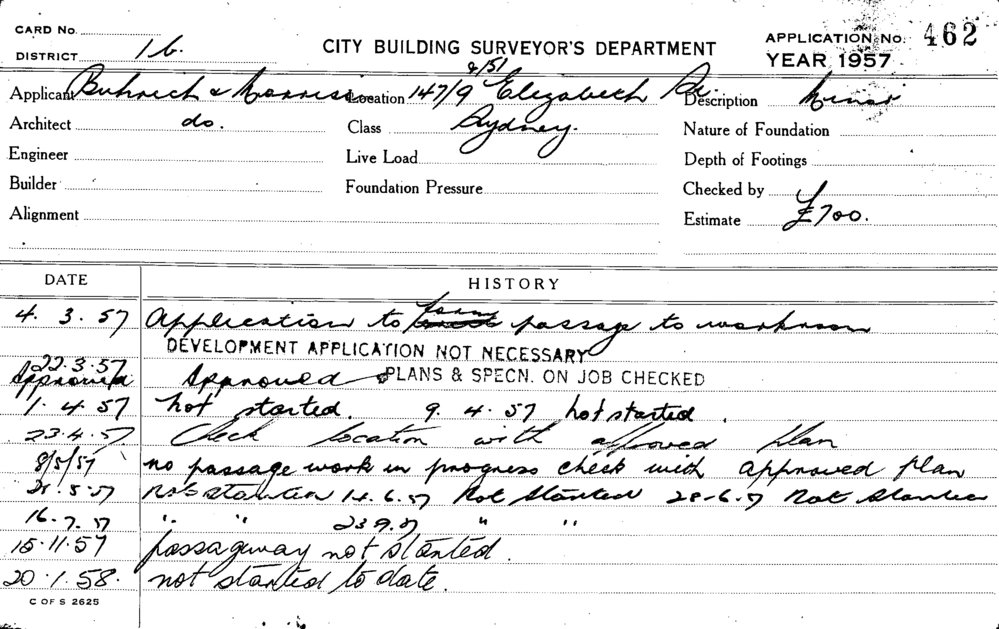 CARD No.
DISTRICT 1 b.
CITY BUILDING SURVEYOR'S DEPARTMENT
APPLICATION No. 462
YEAR 1957
Applicant Buhrich & Morris Location 147/9 Elizabeth Description Minor
Architect do. Class Sydney. Nature of Foundation
Engineer Live Load Depth of Footings
Builder Foundation Pressure Checked by
Alignment Estimate £700.
DATE HISTORY
4. 3. 57 Application to form passage to workroom
DEVELOPMENT APPLICATION NOT NECESSARY
22.3.57
Approved Approved PLANS & SPECN. ON JOB CHECKED
1. 4. 57 not started. 9. 4. 57 not started.
23.4.57 Check location with approved plan
8/5/57 no passage work in progress check with approved plan
28.5.57 Not started 14.6.57 Not started 28-6.57 Not started
16.7.57 " " 23 9.57 " "
15.11.57 passageway not started.
20.1.58. not started to date.
C OF S 2625